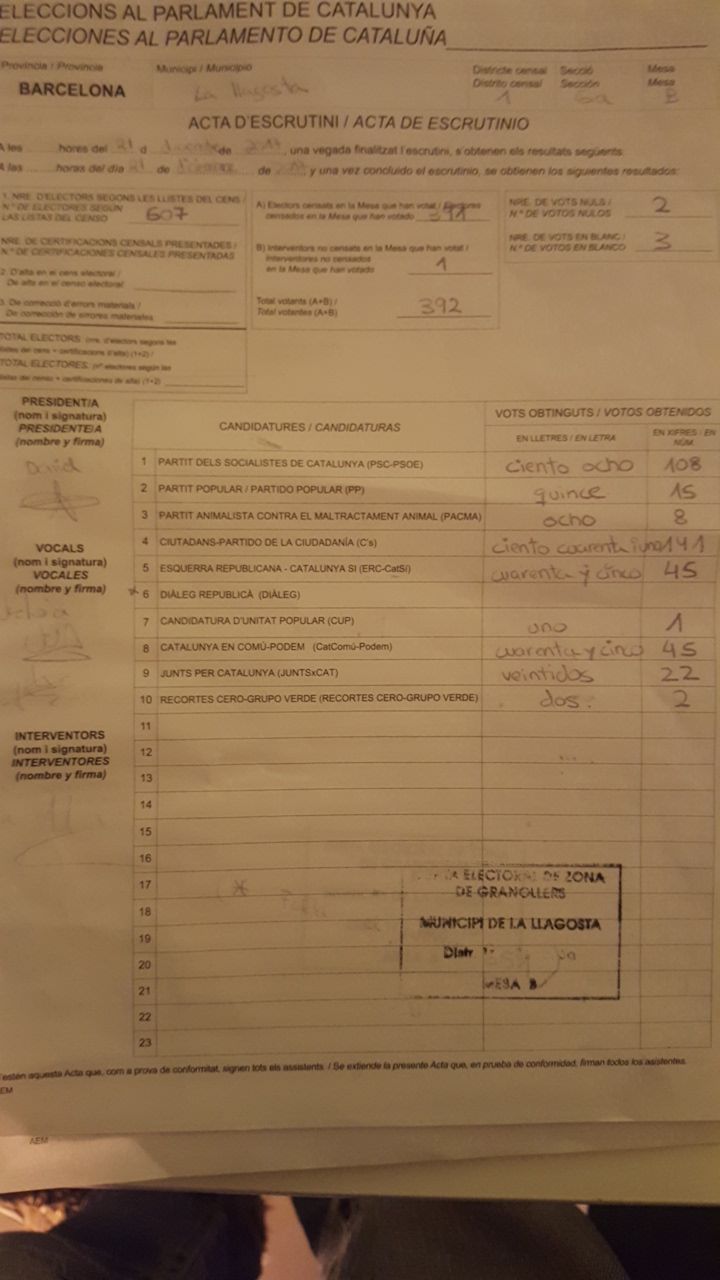 ELECCIONS AL PARLAMENT DE CATALUNYA
ELECCIONES AL PARLAMENTO DE CATALUÑA
Província / Provincia Municipi / Municipio Districte censal Secció Mesa
Distrito censal Sección Mesa
BARCELONA La Llagosta 1 6a B
ACTA D'ESCRUTINI / ACTA DE ESCRUTINIO
A les hores del 21 d de una vegada finalitzat l'escrutini, s'obtenen els resultats següents:
A las horas del día 21 de de y una vez concluido el escrutinio, se obtienen los siguientes resultados:
1. NRE. D'ELECTORS SEGONS LES LLISTES DEL CENS /
N.º DE ELECTORES SEGÚN
LAS LISTAS DEL CENSO 607
NRE. DE CERTIFICACIONS CENSALS PRESENTADES /
N.º DE CERTIFICACIONES CENSALES PRESENTADAS
2. D'alta en el cens electoral /
De alta en el censo electoral
3. De correcció d'errors materials /
De corrección de errores materiales
TOTAL ELECTORS: (nre. d'electors segons les
llistes del cens + certificacions d'alta) (1+2) /
TOTAL ELECTORES: (nº electores según las
listas del censo + certificaciones de alta) (1+2)
A) Electors censats en la Mesa que han votat / Electores
censados en la Mesa que han votado 391
B) Interventors no censats en la Mesa que han votat /
Interventores no censados
en la Mesa que han votado 1
Total votants (A+B) /
Total votantes (A+B) 392
NRE. DE VOTS NULS /
N.º DE VOTOS NULOS 2
NRE. DE VOTS EN BLANC /
N.º DE VOTOS EN BLANCO 3
PRESIDENT/A
(nom i signatura)
PRESIDENTE/A
(nombre y firma)
David
VOCALS
(nom i signatura)
VOCALES
(nombre y firma)
INTERVENTORS
(nom i signatura)
INTERVENTORES
(nombre y firma)
CANDIDATURES / CANDIDATURAS VOTS OBTINGUTS / VOTOS OBTENIDOS
EN LLETRES / EN LETRA EN XIFRES / EN NÚM.
1 PARTIT DELS SOCIALISTES DE CATALUNYA (PSC-PSOE) ciento ocho 108
2 PARTIT POPULAR / PARTIDO POPULAR (PP) quince 15
3 PARTIT ANIMALISTA CONTRA EL MALTRACTAMENT ANIMAL (PACMA) ocho 8
4 CIUTADANS-PARTIDO DE LA CIUDADANÍA (C's) ciento cuarenta y uno 141
5 ESQUERRA REPUBLICANA - CATALUNYA SÍ (ERC-CatSí) cuarenta y cinco 45
* 6 DIÀLEG REPUBLICÀ (DIÀLEG)
7 CANDIDATURA D'UNITAT POPULAR (CUP) uno 1
8 CATALUNYA EN COMÚ-PODEM (CatComú-Podem) cuarenta y cinco 45
9 JUNTS PER CATALUNYA (JUNTSxCAT) veintidos 22
10 RECORTES CERO-GRUPO VERDE (RECORTES CERO-GRUPO VERDE) dos. 2
11
12
13
14
15
16
17
18
19
20
21
22
23
ELECTORAL DE ZONA
DE GRANOLLERS
MUNICIPI DE LA LLAGOSTA
Distr
MESA B
estén aquesta Acta que, com a prova de conformitat, signen tots els assistents. / Se extiende la presente Acta que, en prueba de conformidad, firman todos los asistentes.
EM
AEM